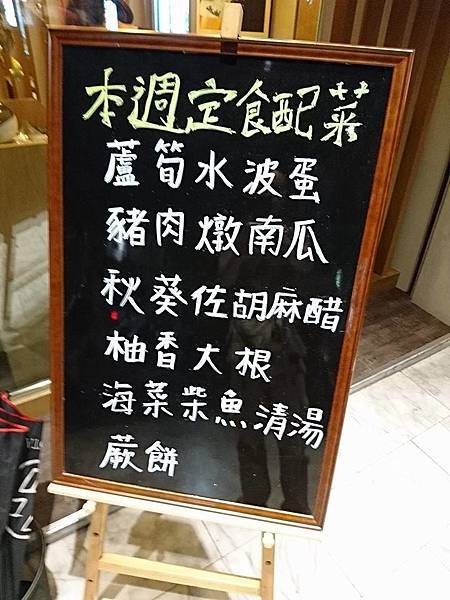 本週定食配菜
蘆筍水波蛋
豬肉燉南瓜
秋葵佐胡麻醋
柚香大根
海菜柴魚清湯
蕨餅